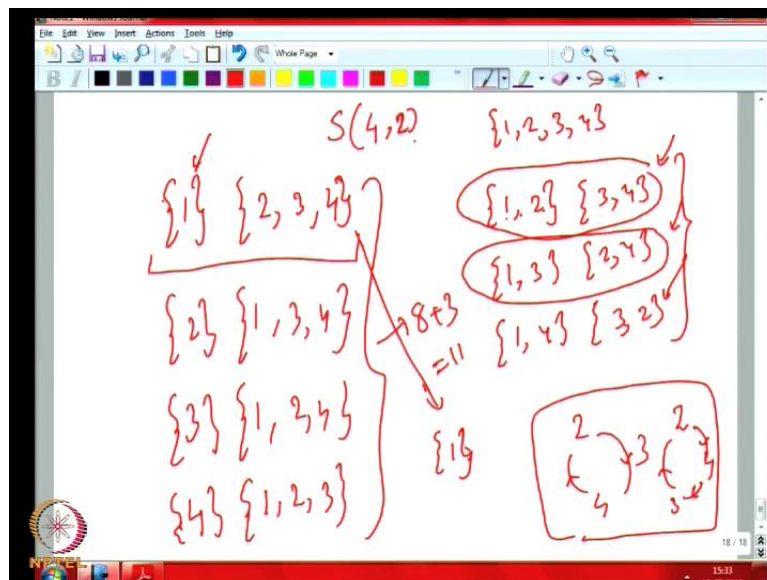 File Edit View Insert Actions Tools Help
Whole Page
B I
S(4,2) {1,2,3,4}
{1} {2,3,4}
{1,2} {3,4}
{1,3} {2,4}
{2} {1,3,4}
→8+3
=11
{1,4} {3 2}
{3} {1, 2 4}
{1}
{4} {1,2,3}
2 3 4
2 4 3
18 / 18
NPTEL
15:33